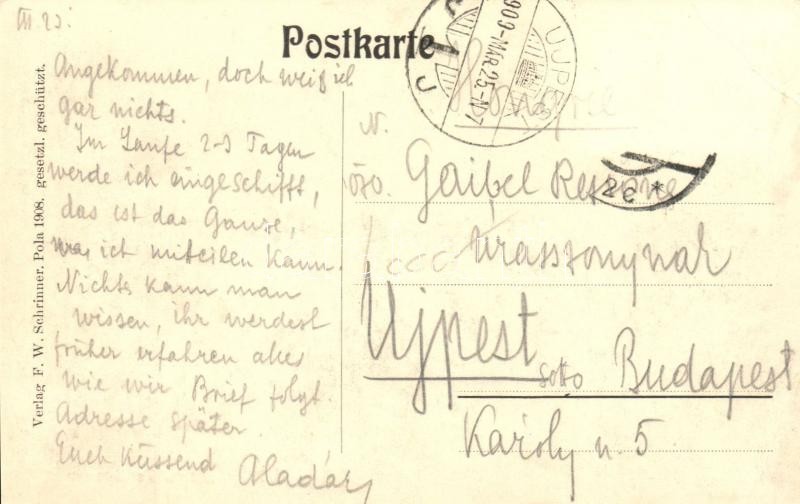 III 23.
Postkarte
Angekommen, doch weiß ich
gar nichts.
Im Laufe 2-3 Tagen
werde ich eingeschifft,
das ist das Ganze,
was ich mitteilen kann.
Nichts kann man
wissen, ihr werdest
früher erfahren alles
wie wir Brief folgt.
Adresse später.
Euch Küssend Aladár
Verlag F. W. Schrinner, Pola 1908. gesetzl. geschützt.
UJPEST
909 MAR 25 N7
N.
Gaibel Rezsőné
urasszonynak
Ujpest
sotto Budapest
Károly u. 5